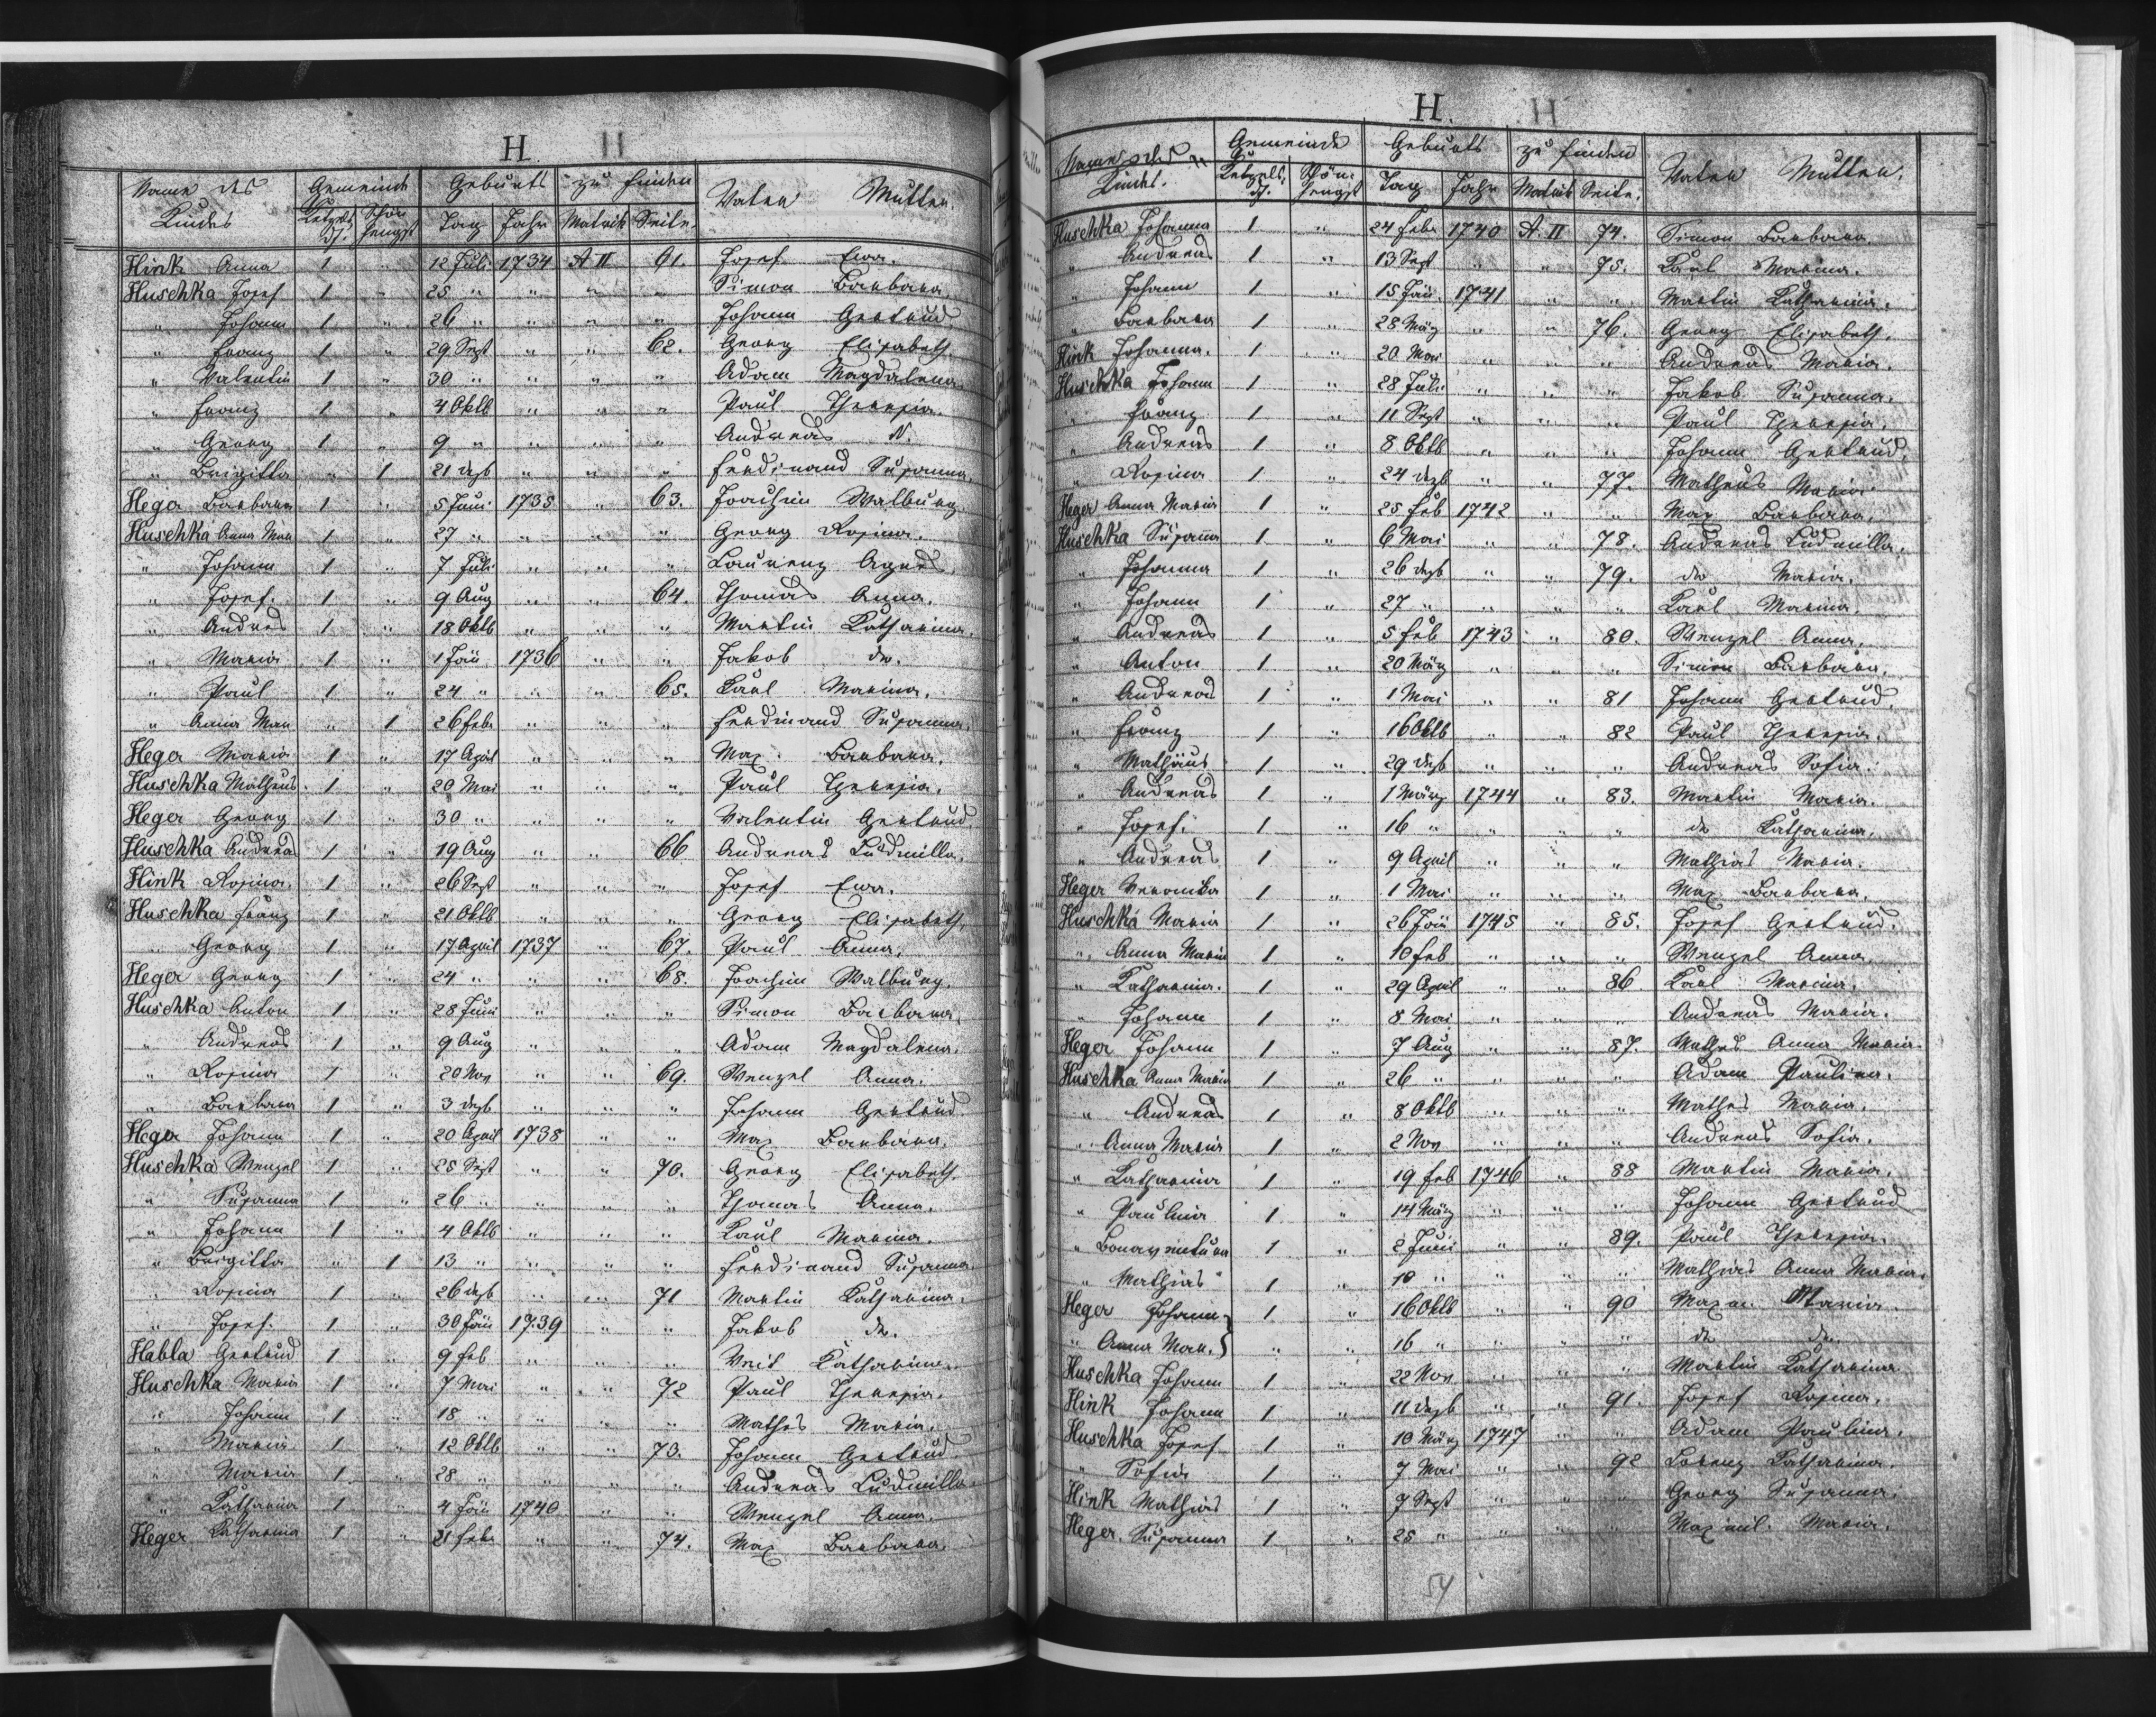 H.
Name des Kindes Gemeinde Geburts zu finden Vater Mutter.
Ketzelsdf. Schönhengst Tag Jahr Matrik Seite.
Hink Anna 1 " 12 Juli 1734 A II 61. Josef Ewa.
Huschka Josef 1 " 25 " " " " Simon Barbara.
" Johann 1 " 26 " " " " Johann Gertrud
" Franz 1 " 29 Sept " " 62. Georg Elisabeth.
" Valentin 1 " 30 " " " " Adam Magdalena
" Franz 1 " 4 Oktb " " " Paul Theresia.
" Georg 1 " 9 " " " " Andreas N.
" Brigitta " 1 21 dezb " " " Ferdinand Susanna.
Heger Barbara 1 " 5 Juni 1735 " 63. Joachim Walburg
Huschka Anna Mar 1 " 27 " " " " Georg Rosina.
" Johann 1 " 7 Juli " " " Laurenz Agnes.
" Josef. 1 " 9 Aug " " 64. Thomas Anna.
" Andres 1 " 18 Oktb " " " Martin Katharina.
" Maria 1 " 1 Jän 1736 " " Jakob do.
" Paul 1 " 24 " " " 65. Karl Marina.
" Anna Mar " 1 26 febr " " " Ferdinand Susanna.
Heger Maria 1 " 17 April " " " Max. Barbara.
Huschka Matheus 1 " 20 Mai " " " Paul Theresia.
Heger Georg 1 " 30 " " " " Valentin Gertrud
Huschka Andreas 1 " 19 Aug " " 66 Andreas Ludmilla.
Hink Rosina. 1 " 26 Sept " " " Josef Ewa.
Huschka Franz 1 " 21 Oktb " " " Georg Elisabeth.
" Georg 1 " 17 April 1737 " 67. Paul Anna.
Heger Georg 1 " 24 " " " 68. Joachim Walburg.
Huschka Anton 1 " 28 Juni " " " Simon Barbara.
" Andreas 1 " 9 Aug " " " Adam Magdalena.
" Rosina 1 " 20 Nov " " 69. Wenzel Anna.
" Barbara 1 " 3 dezb " " " Johann Gertrud
Heger Johann 1 " 20 April 1738 " " Max Barbara.
Huschka Wenzel 1 " 25 Sept " " 70. Georg Elisabeth.
" Susanna 1 " 26 " " " " Thomas Anna.
" Johann 1 " 4 Oktb " " " Karl Marina.
" Brigitta " 1 13 " " " " Ferdinand Susanna
" Rosina 1 " 26 dezb " " 71 Martin Katharina.
" Josef. 1 " 30 Jän 1739 " " Jakob do.
Habla Gertrud 1 " 9 feb " " " Veit Katharina.
Huschka Maria 1 " 7 Mai " " 72 Paul Theresia.
" Johann 1 " 18 " " " " Mathes Maria.
" Maria 1 " 12 Oktb " " 73. Johann Gertrud
" Maria 1 " 28 " " " " Andreas Ludmilla.
" Katharina 1 " 4 Jän 1740 " " Wenzel Anna.
Heger Katharina 1 " 21 febr " " 74. Max Barbara.
H.
Name des Kindes. Gemeinde Geburts zu finden Vater Mutter.
Ketzelsdf. Schönhengst Tag Jahr Matrik Seite.
Huschka Johanna 1 " 24 febr 1740 A. II 74. Simon Barbara.
" Andreas 1 " 13 Sept " " 75. Karl Marina.
" Johann 1 " 15 Jän. 1741 " " Martin Katharina.
" Barbara 1 " 28 März " " 76. Georg Elisabeth.
Hink Johanna. 1 " 20 Mai " " " Andreas Maria.
Huschka Johann 1 " 28 Juli " " " Jakob Susanna.
" Franz 1 " 11 Sept " " " Paul Theresia.
" Andreas 1 " 8 Oktb " " " Johann Gertrud.
" Rosina 1 " 24 dezb " " 77. Matheus Maria
Heger Anna Maria 1 " 25 feb 1742 " " Max Barbara.
Huschka Susanna 1 " 6 Mai " " 78. Andreas Ludmilla.
" Johanna 1 " 26 dezb " " 79. do Maria.
" Johann 1 " 27 " " " " Karl Marina.
" Andreas 1 " 5 feb 1743 " 80. Wenzel Anna.
" Anton 1 " 20 März " " " Simon Barbara.
" Andreas 1 " 1 Mai " " 81 Johann Gertrud.
" Franz 1 " 16 Oktb " " 82 Paul Theresia.
" Mathäus 1 " 29 dezb " " " Andreas Sofia.
" Andreas 1 " 1 März 1744 " 83. Martin Maria.
" Josef. 1 " 16 " " " " do Katharina.
" Andreas 1 " 9 April " " " Mathias Maria.
Heger Veronika 1 " 1 Mai " " " Max Barbara.
Huschka Maria 1 " 26 Jän 1745 " 85. Josef Gertrud.
" Anna Maria 1 " 10 feb " " " Wenzel Anna.
" Katharina. 1 " 29 April " " 86. Karl Marina.
" Johann 1 " 8 Mai " " " Andreas Maria.
Heger Johann 1 " 7 Aug " " 87. Mathes Anna Maria.
Huschka Anna Maria 1 " 26 " " " " Adam Paulina.
" Andreas 1 " 8 Oktb " " " Mathes Maria.
" Anna Maria 1 " 2 Nov " " " Andreas Sofia.
" Katharina 1 " 19 feb 1746 " 88 Martin Maria.
" Paulina 1 " 14 März " " " Johann Gertrud
" Bonaventura 1 " 2 Juni " " 89. Paul Theresia.
" Mathias 1 " 10 " " " " Mathias Anna Maria.
Heger Johann } 1 " 16 Oktb " " 90 Maxm. Maria.
" Anna Mar. } " " 16 " " " " do do.
Huschka Johann 1 " 22 Nov " " " Martin Katharina.
Hink Johann 1 " 11 dezb " " 91. Josef Rosina.
Huschka Josef 1 " 10 März 1747 " " Adam Paulina.
" Sofia 1 " 7 Mai " " 92 Lorenz Katharina.
Hink Mathias 1 " 7 Sept " " " Georg Susanna.
Heger. Susanna 1 " 25 " " " " Maximil. Maria.
54